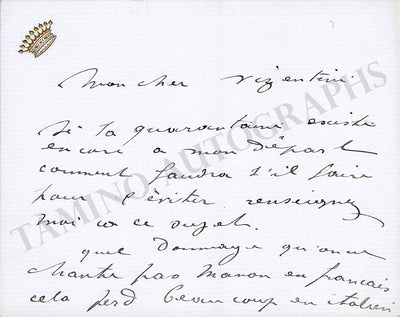 Mon cher Vizentini
Si la quarantaine existe
encore a mon départ
comment faudra t'il faire
pour l'éviter renseignez
moi a ce sujet.
quel dommage qu'on ne
chante pas Manon en francais
cela perd beaucoup en italien
TAMINO AUTOGRAPHS